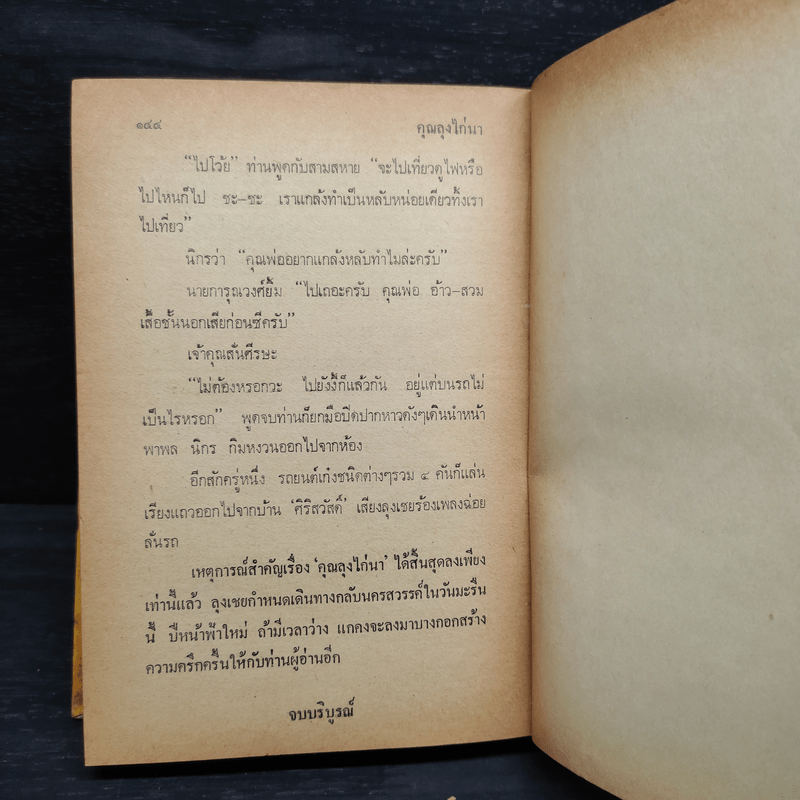 ๑๔๔ คุณลุงไก่นา
“ไปโว้ย” ท่านพูดกับสามสหาย “จะไปเที่ยวดูไฟหรือ
ไปไหนก็ไป ชะ-ชะ เราแกล้งทำเป็นหลับหน่อยเดียวทิ้งเรา
ไปเที่ยว”
นิกรว่า “คุณพ่ออยากแกล้งหลับทำไมล่ะครับ”
นายการุณวงศ์ยิ้ม “ไปเถอะครับ คุณพ่อ อ้าว-สวม
เสื้อชั้นนอกเสียก่อนซีครับ”
เจ้าคุณสั่นศีรษะ
“ไม่ต้องหรอกวะ ไปยังงี้ก็แล้วกัน อยู่แต่บนรถไม่
เป็นไรหรอก” พูดจบท่านก็ยกมือปิดปากหาวดังๆเดินนำหน้า
พาพล นิกร กิมหงวนออกไปจากห้อง
อีกสักครู่หนึ่ง รถยนต์เก๋งชนิดต่างๆรวม ๔ คันก็แล่น
เรียงแถวออกไปจากบ้าน ‘ศิริสวัสดิ์’ เสียงลุงเชยร้องเพลงฉ่อย
ลั่นรถ
เหตุการณ์สำคัญเรื่อง ‘คุณลุงไก่นา’ ได้สิ้นสุดลงเพียง
เท่านี้แล้ว ลุงเชยกำหนดเดินทางกลับนครสวรรค์ในวันมะรืน
นี้ ปีหน้าฟ้าใหม่ ถ้ามีเวลาว่าง แกคงจะลงมาบางกอกสร้าง
ความครึกครื้นให้กับท่านผู้อ่านอีก
จบบริบูรณ์